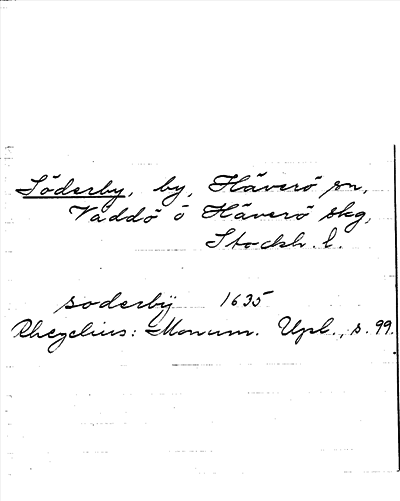 Söderby, by, Häverö sn,
Väddö o Häverö skg,
Stockh. l.
soderbÿ 1635
Rhezelius: Monum. Upl., s. 99.